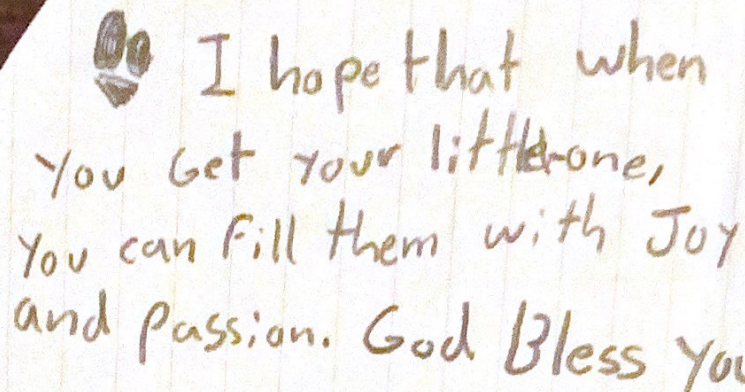 I hope that when
You Get Your little-one,
You can Fill them with Joy
and Passion. God Bless You